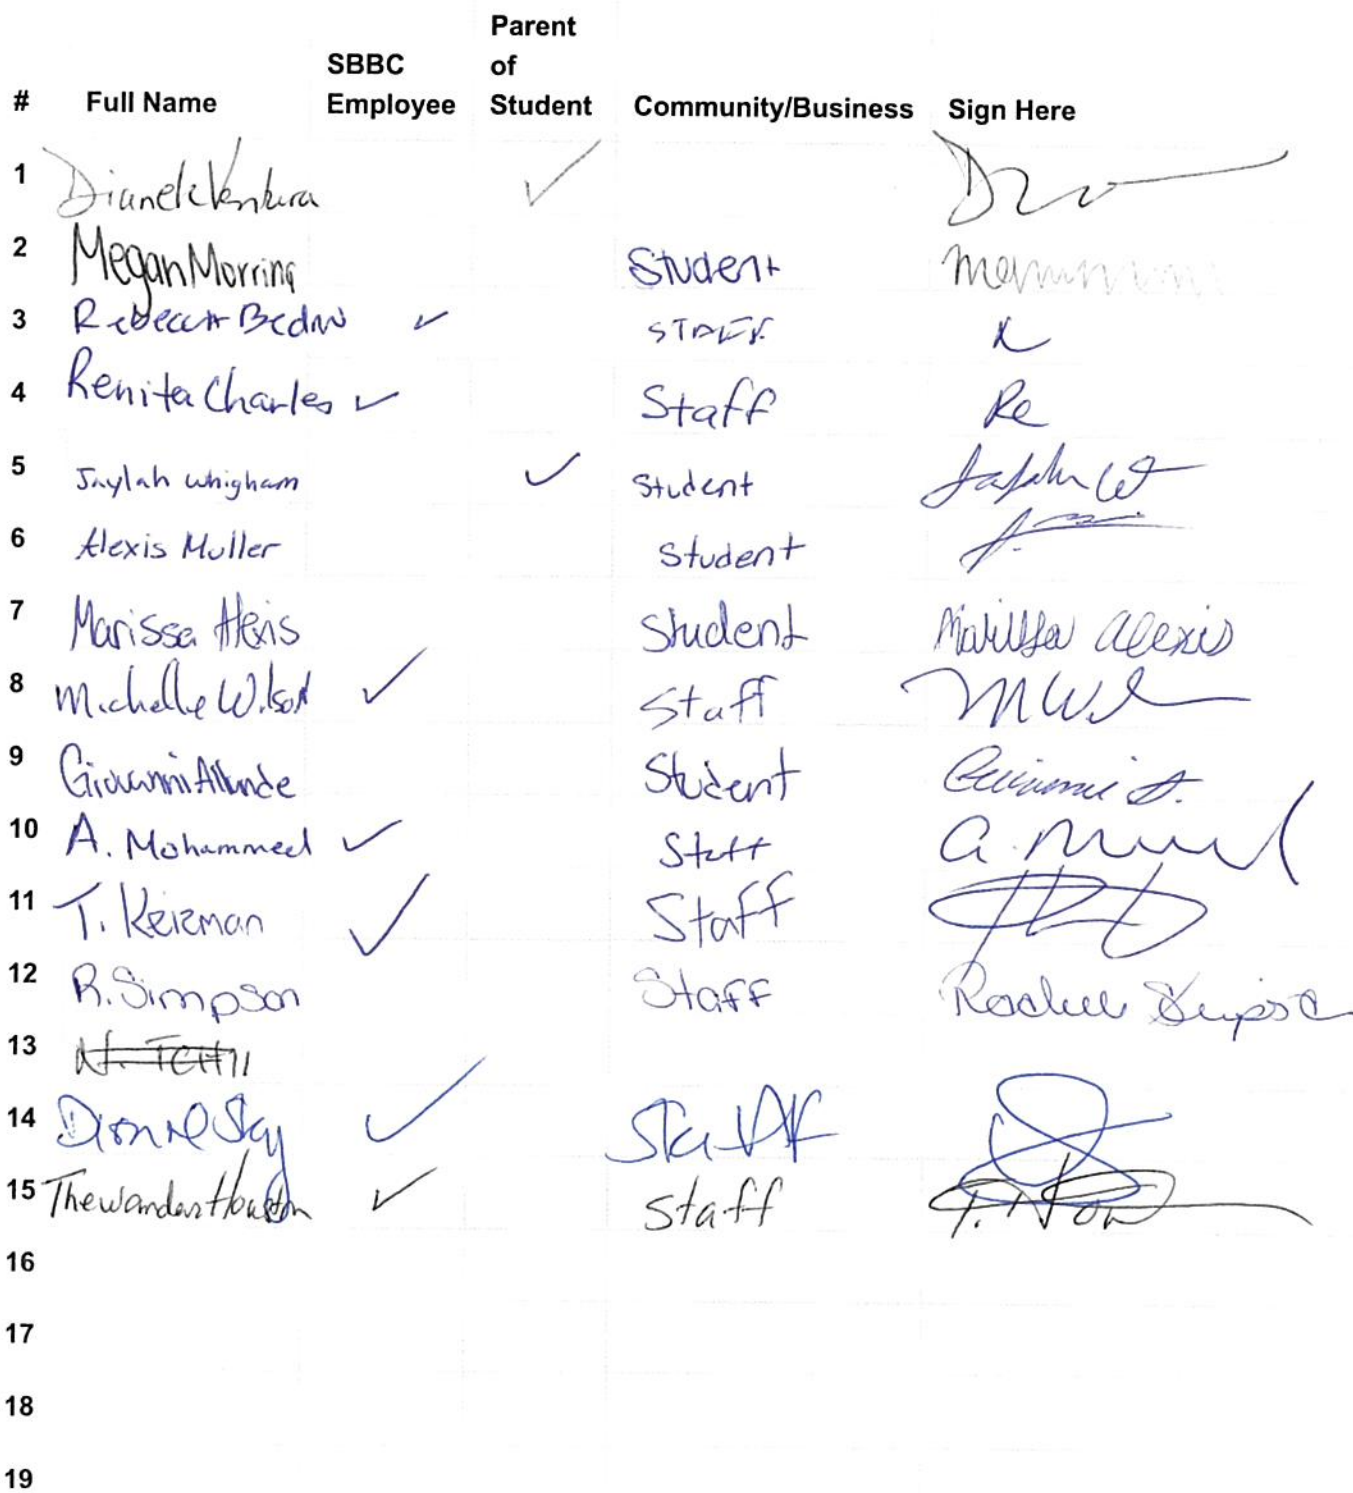 # Full Name SBBC Employee Parent of Student Community/Business Sign Here
1 Ventura ✓
2 Megan Morring Student
3 Rebecca ✓ STAFF R
4 Renita Charles ✓ Staff Re
5 Jaylah Whigham ✓ Student
6 Alexis Muller Student
7 Marissa Alexis Student Marissa Alexis
8 Michelle Wilson ✓ Staff
9 Giovanni Student Giovanni A.
10 A. Mohammed ✓ Staff
11 T. Keizman ✓ Staff
12 R. Simpson Staff
13
14 ✓ Staff
15 Houston ✓ Staff
16
17
18
19